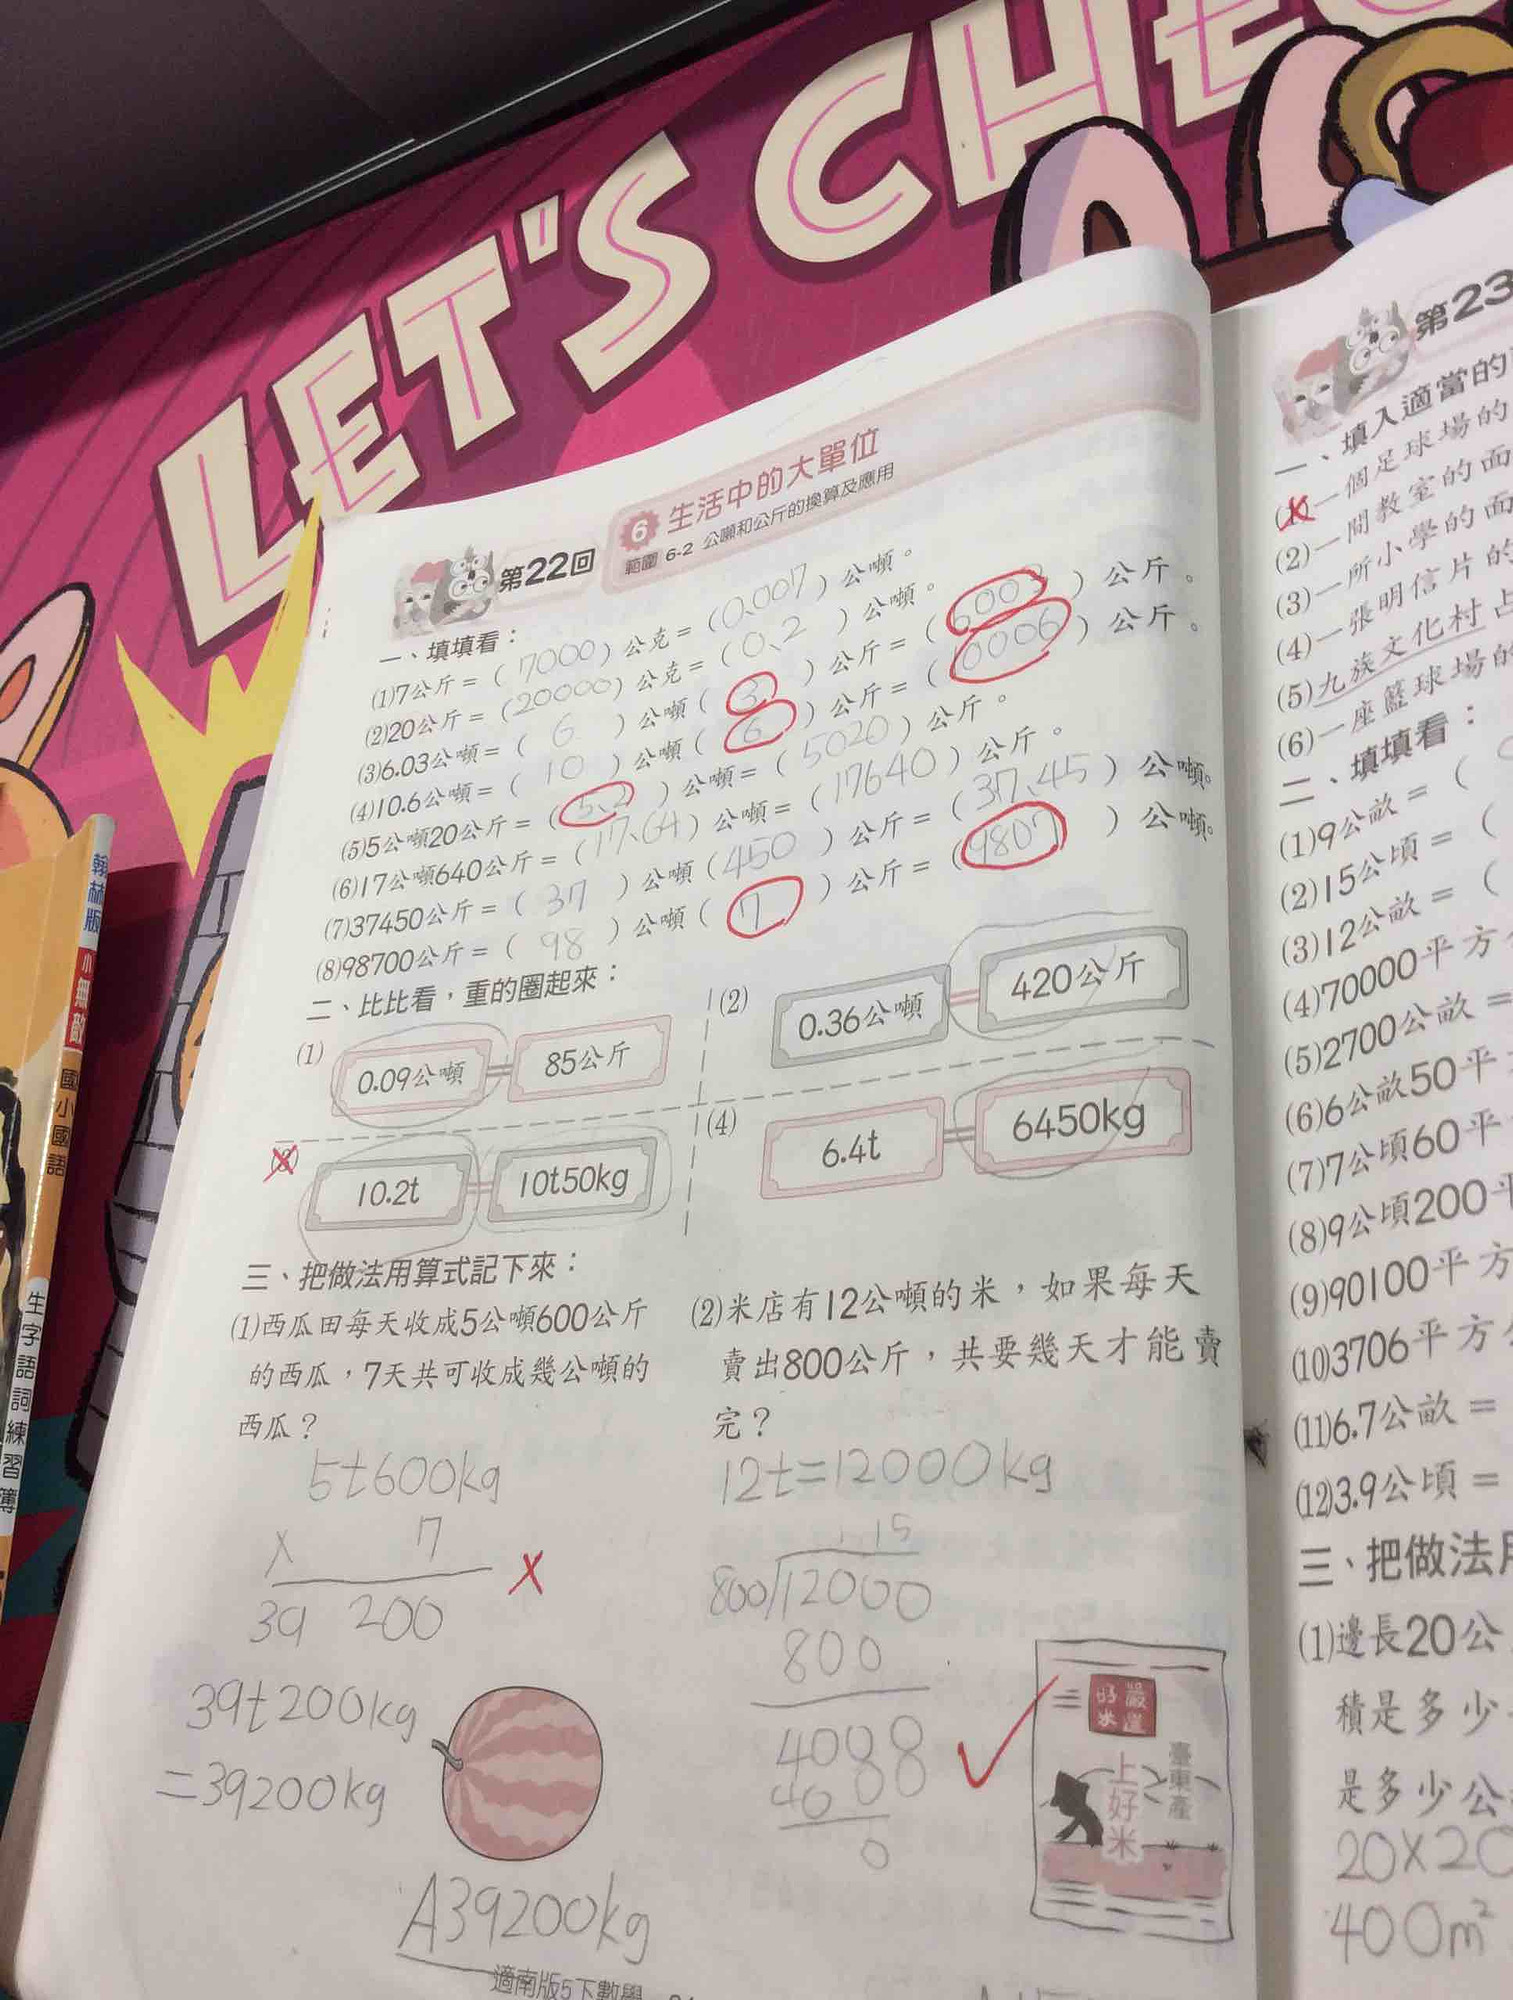 LET'S CHE
第22回
6 生活中的大單位
範圍 6-2 公噸和公斤的換算及應用
一、填填看：
(1)7公斤=(7000)公克=(0.007)公噸。
(2)20公斤=(20000)公克=(0.2)公噸。
(3)6.03公噸=(6)公噸(3)公斤=(6003)公斤。
(4)10.6公噸=(10)公噸(6)公斤=()公斤。
(5)5公噸20公斤=(5.2)公噸=(5020)公斤。
(6)17公噸640公斤=(17.64)公噸=(17640)公斤。
(7)37450公斤=(37)公噸(450)公斤=(37.45)公噸。
(8)98700公斤=(98)公噸(7)公斤=(9807)公噸。
二、比比看，重的圈起來：
(1) 0.09公噸 = 85公斤
(2) 0.36公噸 = 420公斤
10.2t = 10t50kg
(4) 6.4t = 6450kg
三、把做法用算式記下來：
(1)西瓜田每天收成5公噸600公斤
的西瓜，7天共可收成幾公噸的
西瓜？
5t600kg
× 7
39 200
39t200kg
=39200kg
A39200kg
(2)米店有12公噸的米，如果每天
賣出800公斤，共要幾天才能賣
完？
12t=12000kg
15
800 12000
800
4000
4000
0
臺東產
上好米
適南版5下數學
第23
一、填入適當的
一個足球場的
(2)一間教室的面
(3)一所小學的面
(4)一張明信片的
(5)九族文化村占
(6)一座籃球場的
二、填填看：
(1)9公畝=(
(2)15公頃=(
(3)12公畝=(
(4)70000平方
(5)2700公畝=
(6)6公畝50平
(7)7公頃60平
(8)9公頃200平
(9)90100平方
(10)3706平方
(11)6.7公畝=
(12)3.9公頃=
三、把做法用
(1)邊長20公
積是多少
是多少公
20×20
400m²
翰林版 小無敵 國小國語
生字語詞練習簿